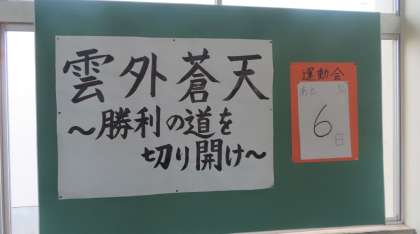 雲外蒼天
～勝利の道を
切り開け～
運動会
あと
6
日